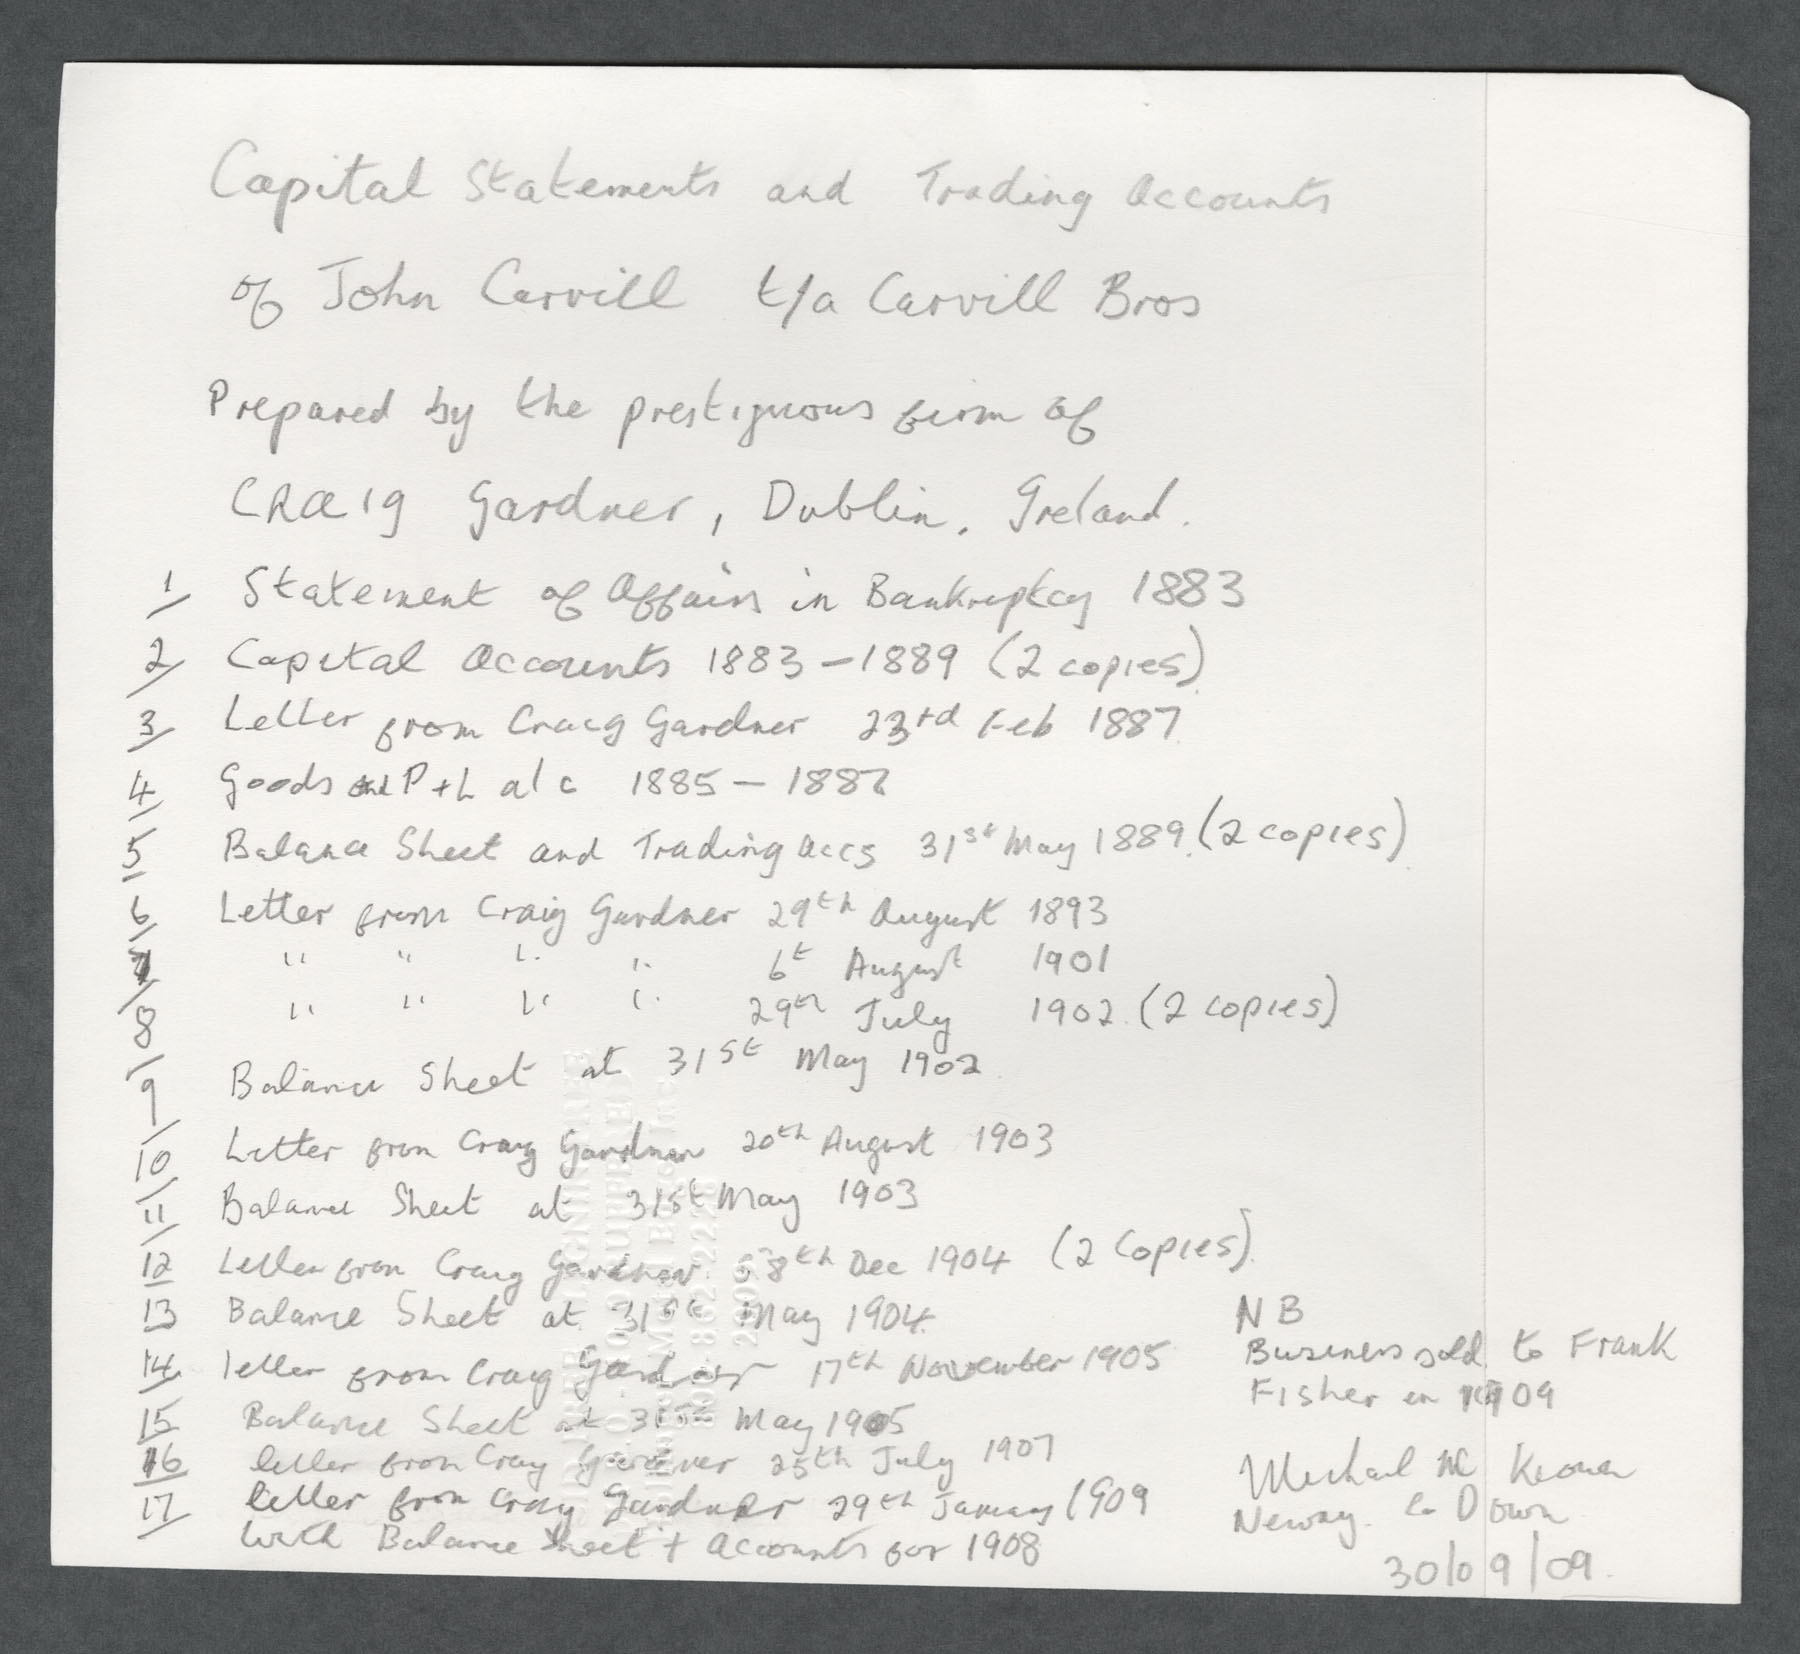 Capital Statements and Trading Accounts
of John Carvill t/a Carvill Bros
Prepared by the prestiguous firm of
CRAIG Gardner, Dublin, Ireland.
1/ Statement of Affairs in Bankruptcy 1883
2/ Capital Accounts 1883 - 1889 (2 copies)
3/ Letter from Craig Gardner 23rd Feb 1887
4/ Goods and P + L a/c 1885 - 1887
5/ Balance Sheet and Trading Accs 31st May 1889. (2 copies)
6/ Letter from Craig Gardner 29th August 1893
7/ " " " " 6t August 1901
8/ " " " " 29th July 1902. (2 copies)
9/ Balance Sheet at 31st May 1902
10/ Letter from Craig Gardner 20th August 1903
11/ Balance Sheet at 31st May 1903
12 Letter from Craig Gardner 8th Dec 1904 (2 Copies)
13 Balance Sheet at 31st May 1904
14 letter from Craig Gardner 17th November 1905
15 Balance Sheet at 31st May 1905
16 letter from Craig Gardner 25th July 1907
17 letter from Craig Gardner 29th January 1909
with Balance Sheet + Accounts for 1908
NB
Business sold to Frank
Fisher in 1909
Michael Mc Keown
Newry. Co Down
30/09/09.